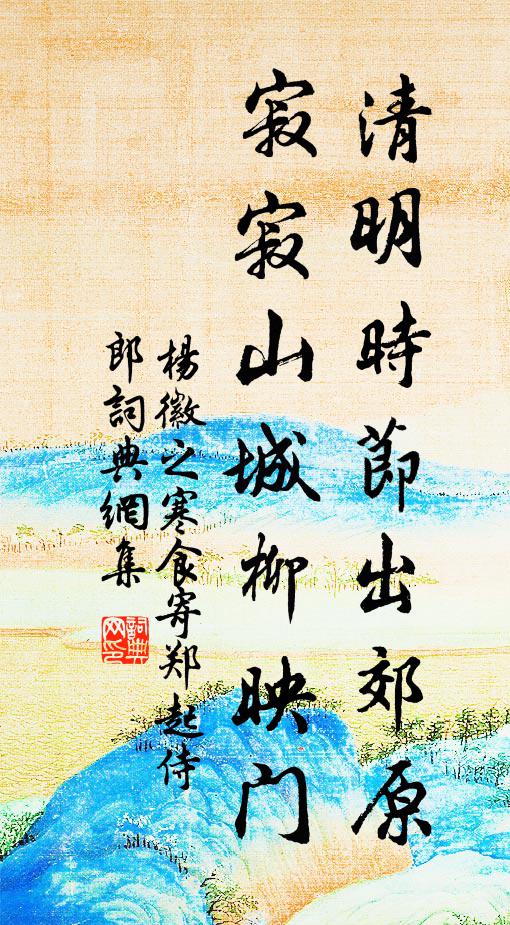 清明時節出郊原
寂寂山城柳映門
楊徽之寒食寄郑起侍
郎詞典網集
詞典
网印